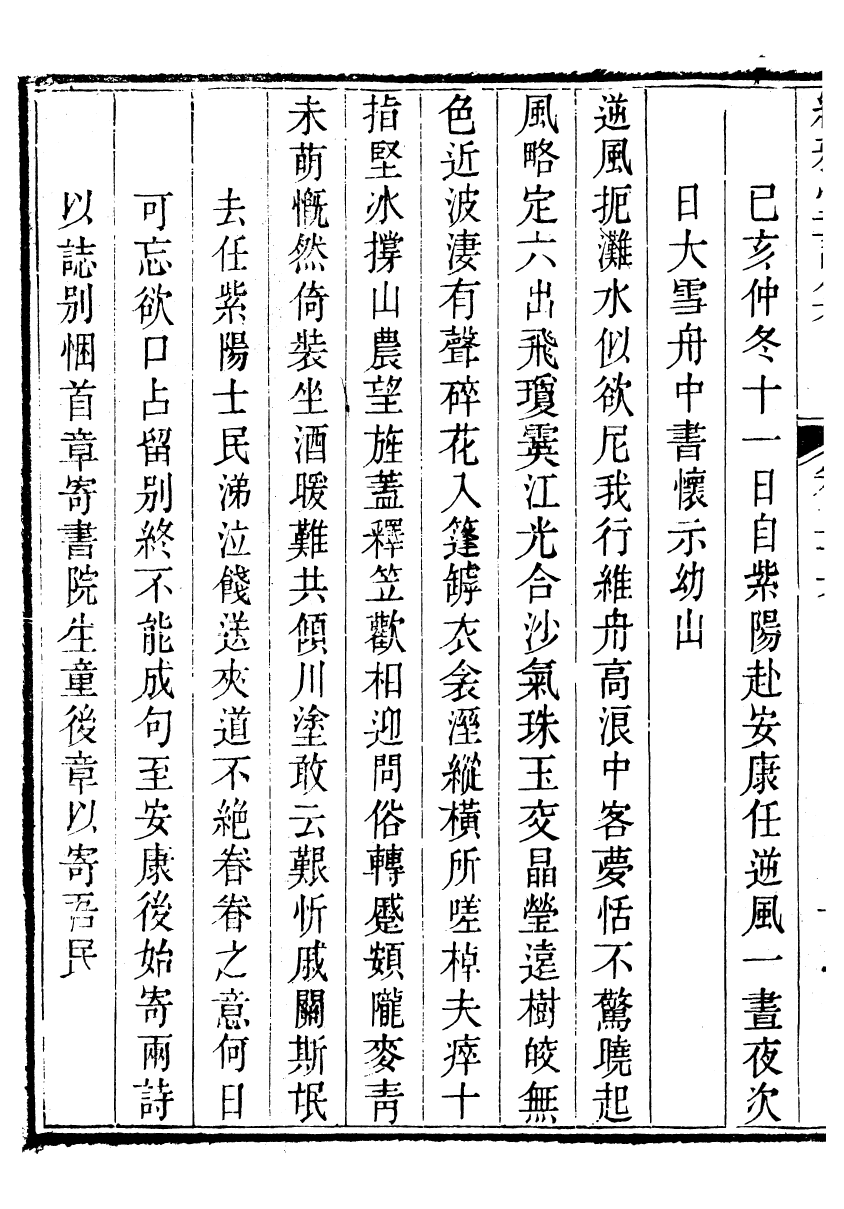 己亥仲冬十一日自紫陽赴安康任逆風一晝夜次
日大雪舟中書懷示幼山
逆風扼灘水似欲尼我行維舟高浪中客夢恬不驚曉起
風略定六出飛瓊霙江光合沙氣珠玉交晶瑩遠樹皎無
色近波淒有聲碎花入篷罅衣衾溼縱橫所嗟棹夫瘁十
指堅冰撐山農望旌蓋釋笠歡相迎問俗轉蹙頞隴麥青
未萌慨然倚裝坐酒暖難共傾川塗敢云艱忻戚關斯氓
去任紫陽士民涕泣餞送夾道不絕眷眷之意何日
可忘欲口占留別終不能成句至安康後始寄兩詩
以誌别悃首章寄書院生童後章以寄吾民